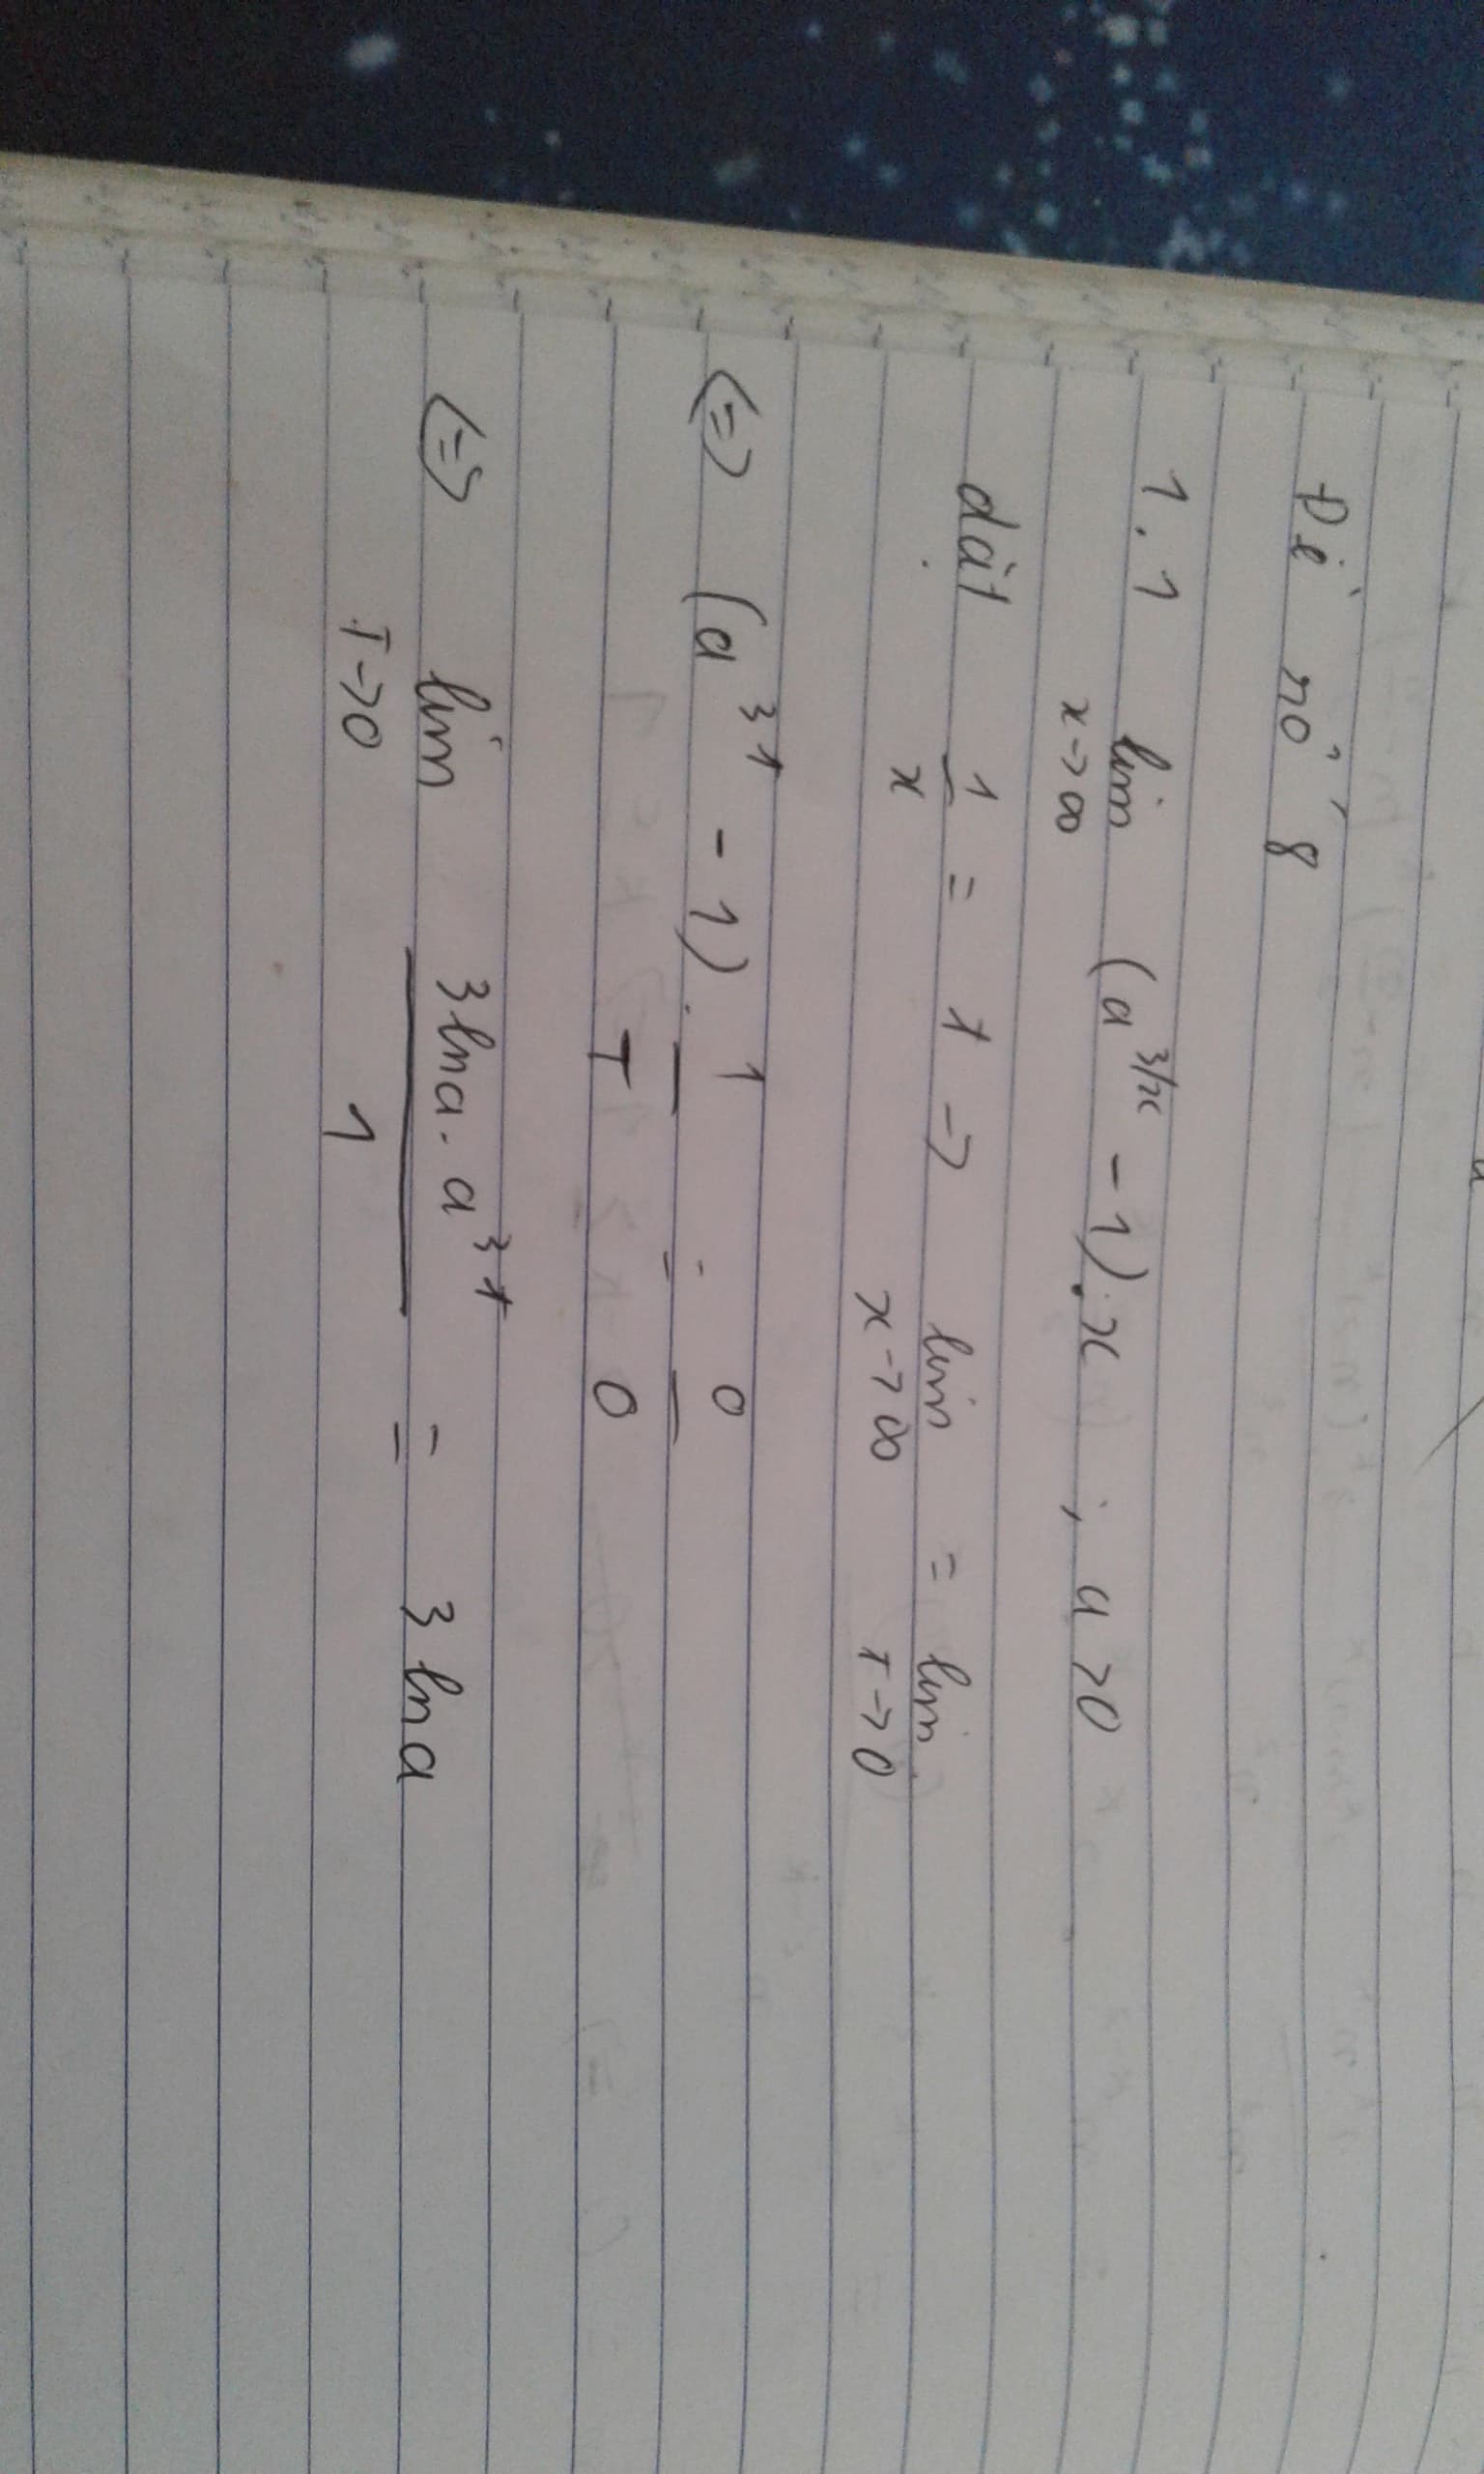 Đề số 8
1.1 lim x→∞ (a^{3/x} - 1).x ; a > 0
đặt 1/x = t → lim x→∞ = lim t→0
<=> (a^{3t} - 1). 1/t = 0/0
<=> lim t→0 3lna.a^{3t}/1 = 3 lna